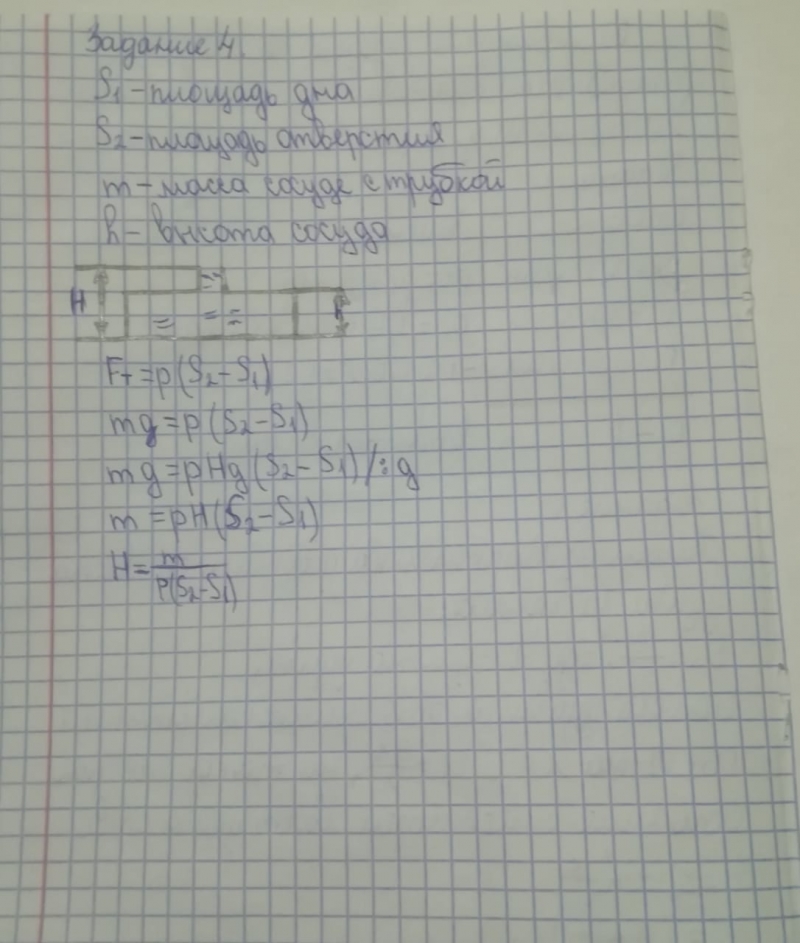 Задание 4
S₁ - площадь дна
S₂ - площадь отверстия
m - масса сосуда с трубкой
h - высота сосуда
H h
Fт = p(S₂ - S₁)
mg = p(S₂ - S₁)
mg = pHg(S₂ - S₁) /: g
m = pH(S₂ - S₁)
H = m / p(S₂ - S₁)